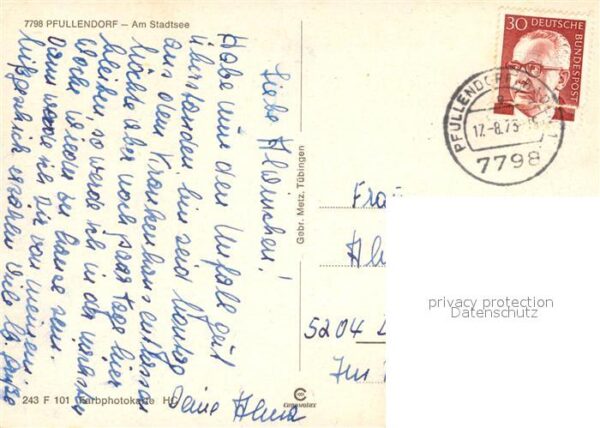 7798 PFULLENDORF – Am Stadtsee
Liebe Alwinchen!
Habe nun den Unfall gut
überstanden, bin seit heute
aus dem Krankenhaus entlassen
möchte aber noch paar Tage hier
bleiben, so werde ich in der nächsten
Woche wieder zu Hause sein.
Dann werde ich dir von meinem
erzählen. Viele lb. Grüße
Deine
243 F 101 Farbphotokarte HC
Gebr. Metz, Tübingen
EUROMOTEX
30 DEUTSCHE
BUNDESPOST
PFULLENDORF
17.-8.73
7798
Frau
5204
Im
privacy protection
Datenschutz